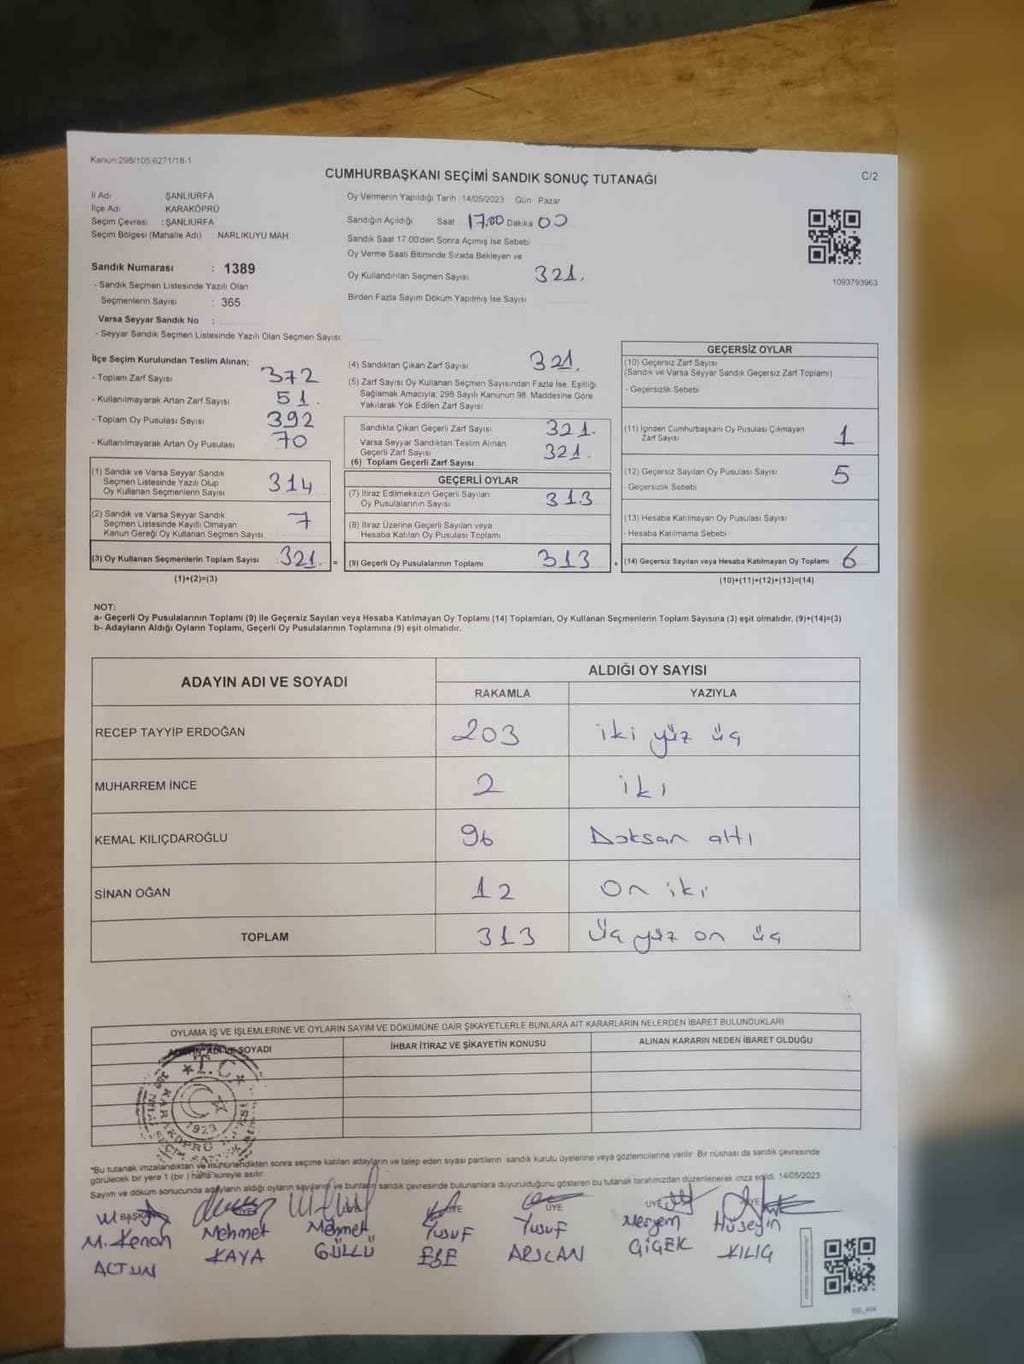 Kanun:298/105-6271/18-1
CUMHURBAŞKANI SEÇİMİ SANDIK SONUÇ TUTANAĞI
C/2
İl Adı ŞANLIURFA
İlçe Adı KARAKÖPRÜ
Seçim Çevresi : ŞANLIURFA
Seçim Bölgesi (Mahalle Adı) NARLIKUYU MAH
Oy Vermenin Yapıldığı Tarih : 14/05/2023 Gün Pazar
Sandığın Açıldığı Saat 17.00 Dakika 00
Sandık Saat 17.00'den Sonra Açımış İse Sebebi
Oy Verme Saati Bitiminde Sırada Bekleyen ve
Oy Kullandırılan Seçmen Sayısı 321.
Birden Fazla Sayım Döküm Yapılmış İse Sayısı
1093793963
Sandık Numarası : 1389
- Sandık Seçmen Listesinde Yazılı Olan
Seçmenlerin Sayısı : 365
Varsa Seyyar Sandık No :
- Seyyar Sandık Seçmen Listesinde Yazılı Olan Seçmen Sayısı:
İlçe Seçim Kurulundan Teslim Alınan;
- Toplam Zarf Sayısı 372
- Kullanılmayarak Artan Zarf Sayısı 51.
- Toplam Oy Pusulası Sayısı 392
- Kullanılmayarak Artan Oy Pusulası 70
(1) Sandık ve Varsa Seyyar Sandık
Seçmen Listesinde Yazılı Olup
Oy Kullanan Seçmenlerin Sayısı 314
(2) Sandık ve Varsa Seyyar Sandık
Seçmen Listesinde Kayıtlı Olmayan
Kanun Gereği Oy Kullanan Seçmen Sayısı 7
(3) Oy Kullanan Seçmenlerin Toplam Sayısı 321. =
(1)+(2)=(3)
(4) Sandıktan Çıkan Zarf Sayısı 321.
(5) Zarf Sayısı Oy Kullanan Seçmen Sayısından Fazla İse, Eşitliği
Sağlamak Amacıyla, 298 Sayılı Kanunun 98. Maddesine Göre
Yakılarak Yok Edilen Zarf Sayısı
Sandıkta Çıkan Geçerli Zarf Sayısı 321.
Varsa Seyyar Sandıktan Teslim Alınan
Geçerli Zarf Sayısı 321.
(6) Toplam Geçerli Zarf Sayısı
GEÇERLİ OYLAR
(7) İtiraz Edilmeksizin Geçerli Sayılan
Oy Pusulalarının Sayısı 313
(8) İtiraz Üzerine Geçerli Sayılan veya
Hesaba Katılan Oy Pusulası Toplamı
(9) Geçerli Oy Pusulalarının Toplamı 313 +
GEÇERSİZ OYLAR
(10) Geçersiz Zarf Sayısı
(Sandık ve Varsa Seyyar Sandık Geçersiz Zarf Toplamı)
- Geçersizlik Sebebi
(11) İçinden Cumhurbaşkanı Oy Pusulası Çıkmayan
Zarf Sayısı 1
(12) Geçersiz Sayılan Oy Pusulası Sayısı 5
- Geçersizlik Sebebi
(13) Hesaba Katılmayan Oy Pusulası Sayısı
- Hesaba Katılmama Sebebi
(14) Geçersiz Sayılan veya Hesaba Katılmayan Oy Toplamı 6
(10)+(11)+(12)+(13)=(14)
NOT:
a- Geçerli Oy Pusulalarının Toplamı (9) ile Geçersiz Sayılan veya Hesaba Katılmayan Oy Toplamı (14) Toplamları, Oy Kullanan Seçmenlerin Toplam Sayısına (3) eşit olmalıdır. (9)+(14)=(3)
b- Adayların Aldığı Oyların Toplamı, Geçerli Oy Pusulalarının Toplamına (9) eşit olmalıdır.
ADAYIN ADI VE SOYADI ALDIĞI OY SAYISI
RAKAMLA YAZIYLA
RECEP TAYYİP ERDOĞAN 203 iki yüz üç
MUHARREM İNCE 2 iki
KEMAL KILIÇDAROĞLU 96 Doksan altı
SİNAN OĞAN 12 On iki
TOPLAM 313 Üç yüz on üç
OYLAMA İŞ VE İŞLEMLERİNE VE OYLARIN SAYIM VE DÖKÜMÜNE DAİR ŞİKAYETLERLE BUNLARA AİT KARARLARIN NELERDEN İBARET BULUNDUKLARI
ADI VE SOYADI İHBAR İTİRAZ VE ŞİKAYETİN KONUSU ALINAN KARARIN NEDEN İBARET OLDUĞU
T.C.
1923
KARAKÖPRÜ
*Bu tutanak imzalandıktan ve mühürlendikten sonra seçime katılan adayların ve talep eden siyasi partilerin sandık kurulu üyelerine veya gözlemcilerine verilir. Bir nüshası da sandık çevresinde
görülecek bir yere 1 (bir) hafta süreyle asılır.
Sayım ve döküm sonucunda adayların aldığı oyların sayılarını ve bunların sandık çevresinde bulunanlara duyurulduğunu gösteren bu tutanak tarafımızdan düzenlenerek imza edildi. 14/05/2023
BAŞKAN ÜYE ÜYE ÜYE
M. Kenan Mehmet Mehmet Yusuf Yusuf Meryem Hüseyin
ALTUN KAYA GÜLLÜ EŞE ARSLAN ÇİÇEK KILIÇ